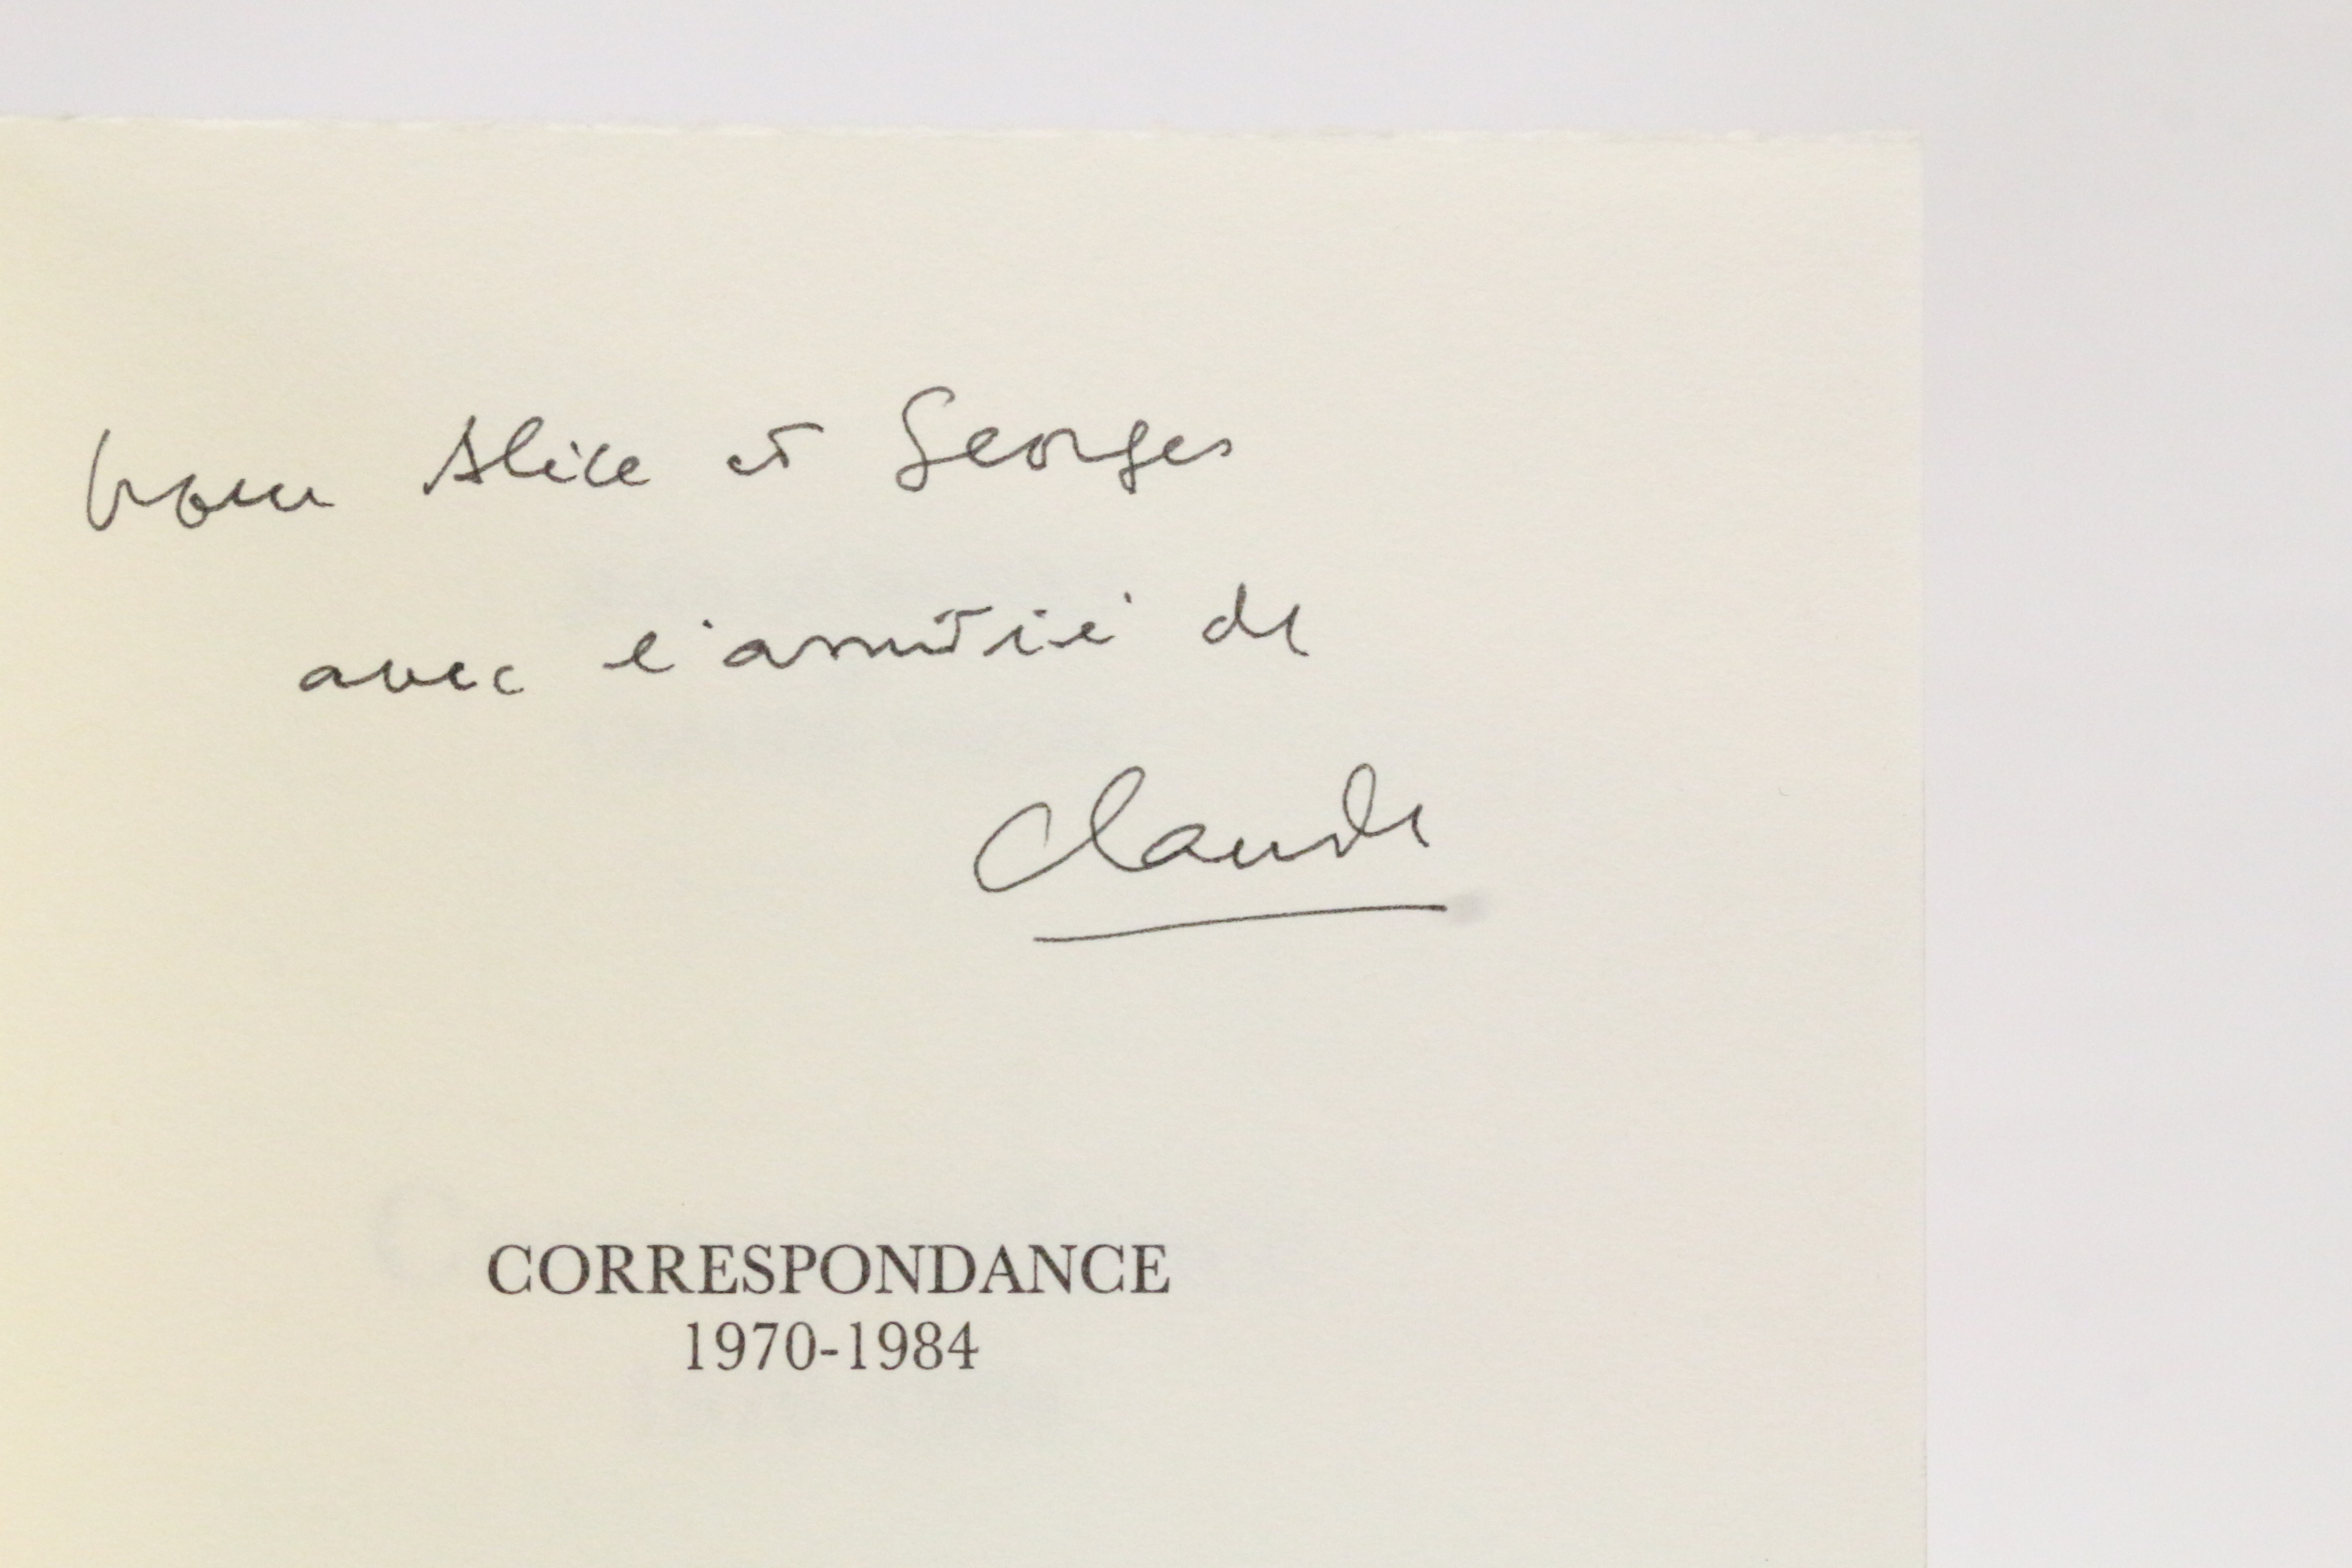 Pour Alice et Georges
avec l'amitié de
Claude
CORRESPONDANCE
1970-1984